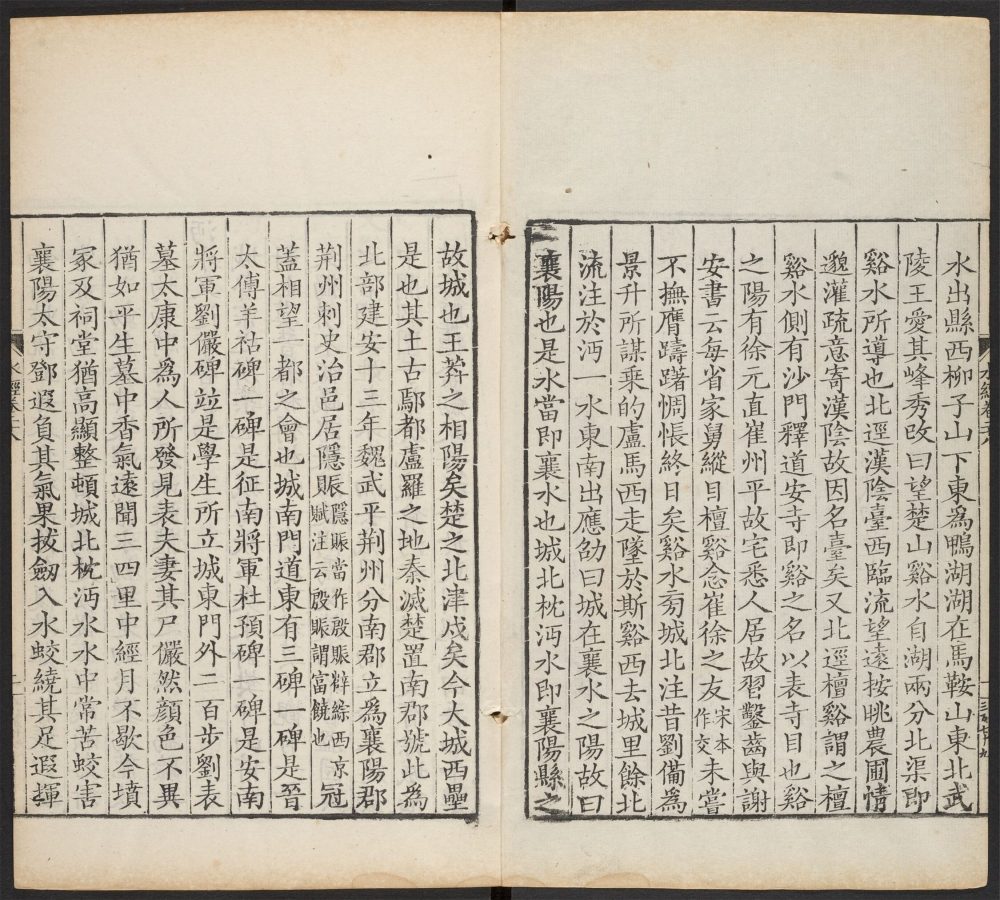 水出縣西柳子山下東為鴨湖湖在馬鞍山東北武
陵王愛其峰秀改曰望楚山谿水自湖兩分北渠即
谿水所導也北逕漢陰臺西臨流望遠按眺農圃情
邈灌疏意寄漢陰故因名臺矣又北逕檀谿謂之檀
谿水側有沙門釋道安寺即谿之名以表寺目也谿
之陽有徐元直崔州平故宅悉人居故習鑿齒與謝
安書云每省家舅縱目檀谿念崔徐之友宋本作交未嘗
不撫膺躊躇惆悵終日矣谿水㫄城北注昔劉備為
景升所謀乘的盧馬西走墜於斯谿西去城里餘北
流注於沔一水東南出應劭曰城在襄水之陽故曰
襄陽也是水當即襄水也城北枕沔水即襄陽縣之
故城也王莽之相陽矣楚之北津戍矣今大城西壘
是也其土古鄢都盧羅之地秦滅楚置南郡號此為
北部建安十三年魏武平荆州分南郡立為襄陽郡
荆州刺史治邑居隱賑隱賑當作殷賑薛綜西京賦注云殷賑謂富饒也冠
蓋相望一都之會也城南門道東有三碑一碑是晉
太傅羊祜碑一碑是征南將軍杜預碑一碑是安南
將軍劉儼碑竝是學生所立城東門外二百步劉表
墓太康中為人所發見表夫妻其尸儼然顏色不異
猶如平生墓中香氣遠聞三四里中經月不歇今墳
冢及祠堂猶高顯整頓城北枕沔水水中常苦蛟害
襄陽太守鄧遐負其氣果拔劒入水蛟繞其足遐揮